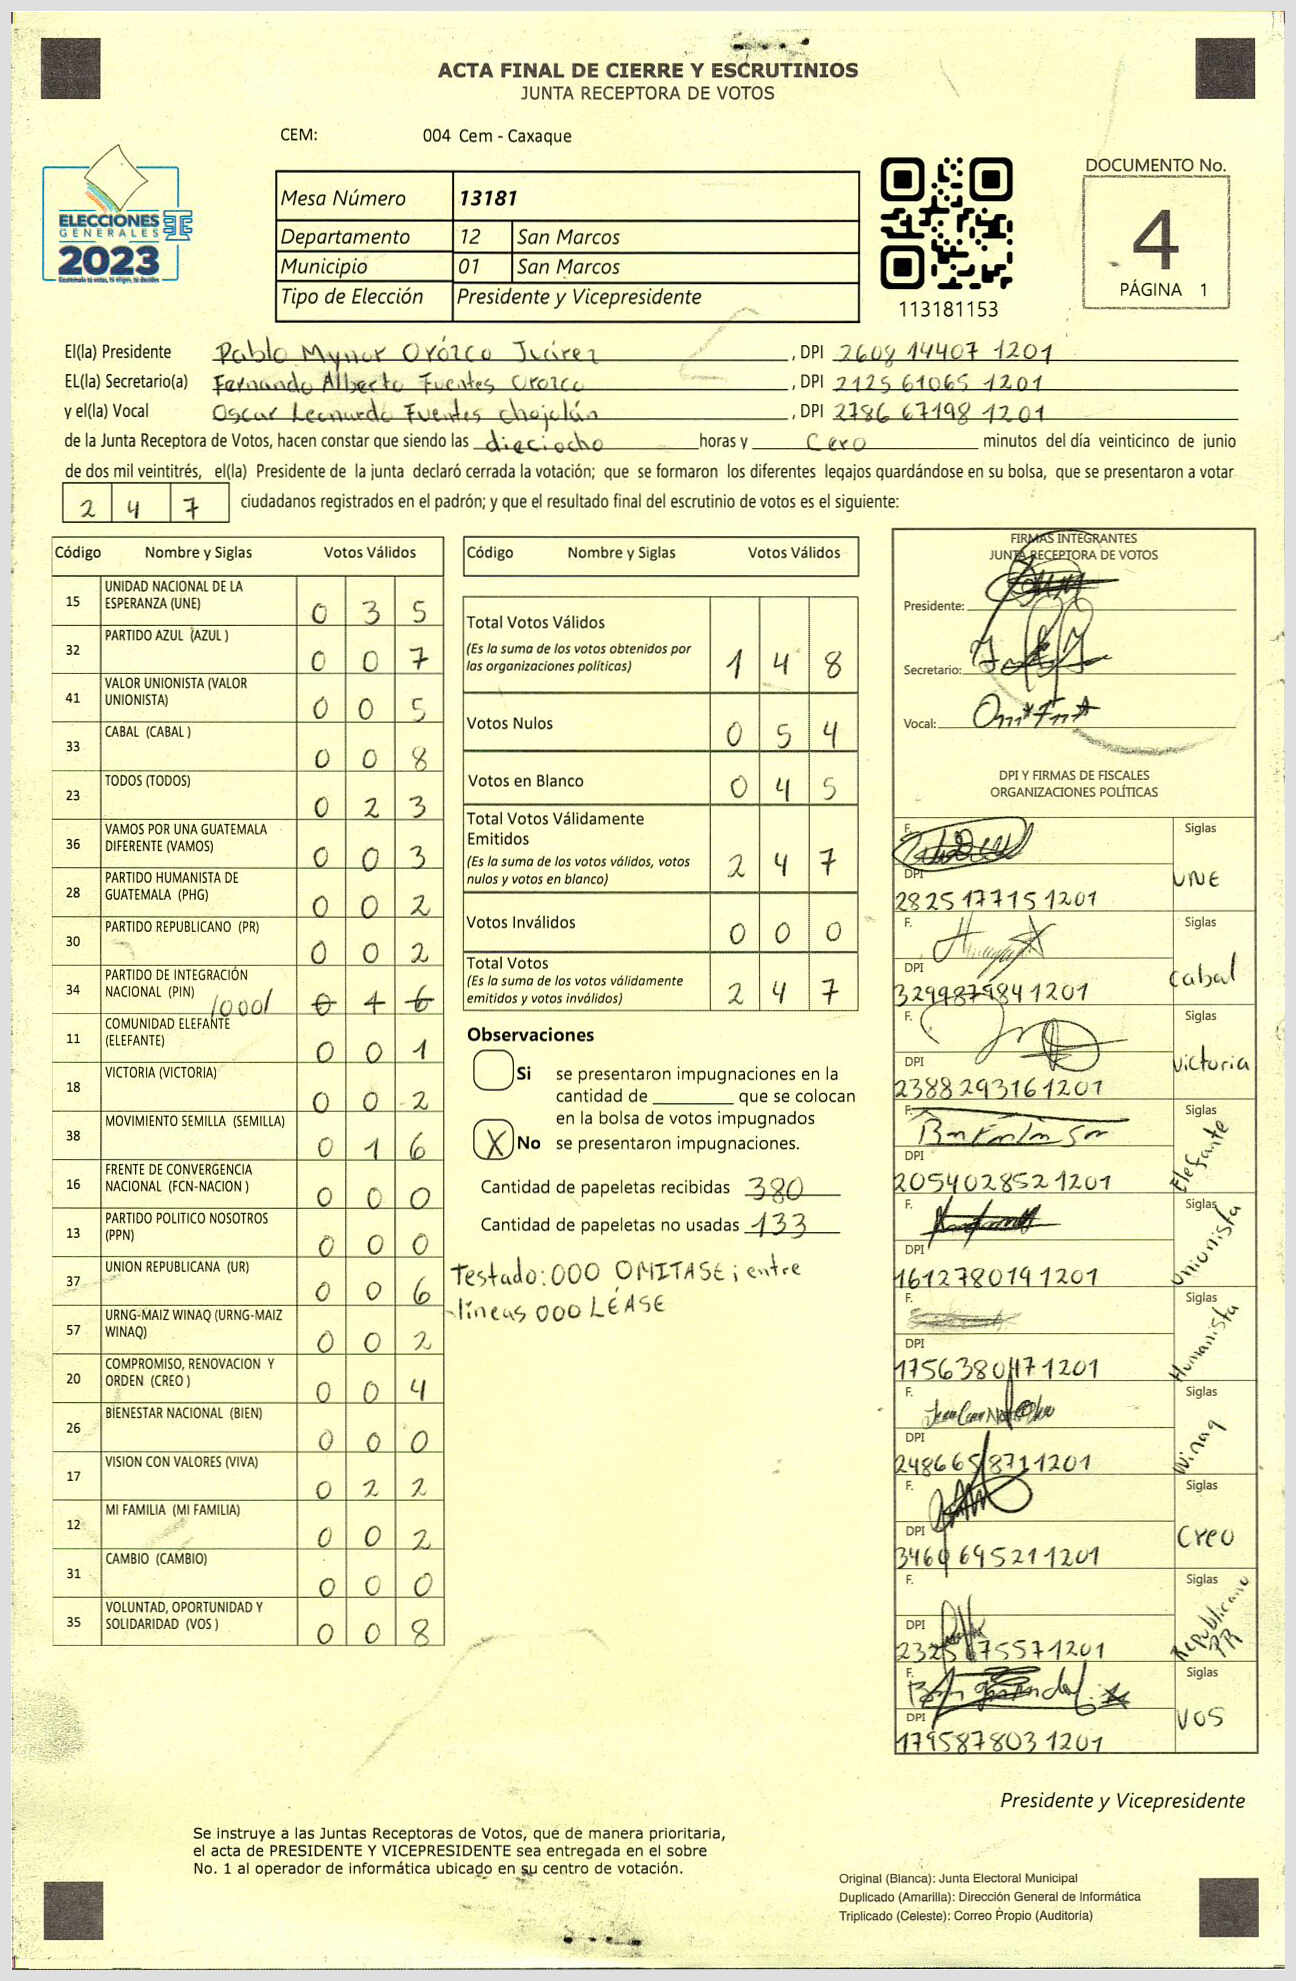 ACTA FINAL DE CIERRE Y ESCRUTINIOS
JUNTA RECEPTORA DE VOTOS
CEM: 004 Cem - Caxaque
ELECCIONES
GENERALES
2023
Mesa Número 13181
Departamento 12 San Marcos
Municipio 01 San Marcos
Tipo de Elección Presidente y Vicepresidente
113181153
DOCUMENTO No.
4
PÁGINA 1
El(la) Presidente Pablo Mynor Orózco Juárez, DPI 2608 14407 1201
EL(la) Secretario(a) Fernando Alberto Fuentes Orozco, DPI 2125 61065 1201
y el(la) Vocal Oscar Leonardo Fuentes Chojolán, DPI 2786 67198 1201
de la Junta Receptora de Votos, hacen constar que siendo las dieciocho horas y Cero minutos del día veinticinco de junio
de dos mil veintitrés, el(la) Presidente de la junta declaró cerrada la votación; que se formaron los diferentes legajos quardándose en su bolsa, que se presentaron a votar
2 4 7 ciudadanos registrados en el padrón; y que el resultado final del escrutinio de votos es el siguiente:
Código Nombre y Siglas Votos Válidos
15 UNIDAD NACIONAL DE LA ESPERANZA (UNE) 0 3 5
32 PARTIDO AZUL (AZUL ) 0 0 7
41 VALOR UNIONISTA (VALOR UNIONISTA) 0 0 5
33 CABAL (CABAL ) 0 0 8
23 TODOS (TODOS) 0 2 3
36 VAMOS POR UNA GUATEMALA DIFERENTE (VAMOS) 0 0 3
28 PARTIDO HUMANISTA DE GUATEMALA (PHG) 0 0 2
30 PARTIDO REPUBLICANO (PR) 0 0 2
34 PARTIDO DE INTEGRACIÓN NACIONAL (PIN) /000/ 0 1 6
11 COMUNIDAD ELEFANTE (ELEFANTE) 0 0 1
18 VICTORIA (VICTORIA) 0 0 2
38 MOVIMIENTO SEMILLA (SEMILLA) 0 1 6
16 FRENTE DE CONVERGENCIA NACIONAL (FCN-NACION ) 0 0 0
13 PARTIDO POLITICO NOSOTROS (PPN) 0 0 0
37 UNION REPUBLICANA (UR) 0 0 6
57 URNG-MAIZ WINAQ (URNG-MAIZ WINAQ) 0 0 2
20 COMPROMISO, RENOVACION Y ORDEN (CREO ) 0 0 4
26 BIENESTAR NACIONAL (BIEN) 0 0 0
17 VISION CON VALORES (VIVA) 0 2 2
12 MI FAMILIA (MI FAMILIA) 0 0 2
31 CAMBIO (CAMBIO) 0 0 0
35 VOLUNTAD, OPORTUNIDAD Y SOLIDARIDAD (VOS ) 0 0 8
Código Nombre y Siglas Votos Válidos
Total Votos Válidos 1 4 8
(Es la suma de los votos obtenidos por
las organizaciones políticas)
Votos Nulos 0 5 4
Votos en Blanco 0 4 5
Total Votos Válidamente
Emitidos 2 4 7
(Es la suma de los votos válidos, votos
nulos y votos en blanco)
Votos Inválidos 0 0 0
Total Votos 2 4 7
(Es la suma de los votos válidamente
emitidos y votos inválidos)
Observaciones
Si se presentaron impugnaciones en la
cantidad de ________ que se colocan
en la bolsa de votos impugnados
X No se presentaron impugnaciones.
Cantidad de papeletas recibidas 380
Cantidad de papeletas no usadas 133
Testado: 000 OMITASE; entre
líneas 000 LÉASE
FIRMAS INTEGRANTES
JUNTA RECEPTORA DE VOTOS
Presidente:
Secretario:
Vocal:
DPI Y FIRMAS DE FISCALES
ORGANIZACIONES POLÍTICAS
F. Siglas
DPI UNE
2825177151201
F. Siglas
DPI Cabal
3299879841201
F. Siglas
DPI Victoria
2388293161201
F. Siglas
DPI Elefante
2054028521201
F. Siglas
DPI Unionista
1612780191201
F. Siglas
DPI Humanista
1756380471201
F. Siglas
DPI Winaq
2486658711201
F. Siglas
DPI Creo
3460645211201
F. Siglas
DPI Republicano PR
F. Siglas
DPI VOS
1795878031201
Presidente y Vicepresidente
Se instruye a las Juntas Receptoras de Votos, que de manera prioritaria,
el acta de PRESIDENTE Y VICEPRESIDENTE sea entregada en el sobre
No. 1 al operador de informática ubicado en su centro de votación.
Original (Blanca): Junta Electoral Municipal
Duplicado (Amarilla): Dirección General de Informática
Triplicado (Celeste): Correo Propio (Auditoría)